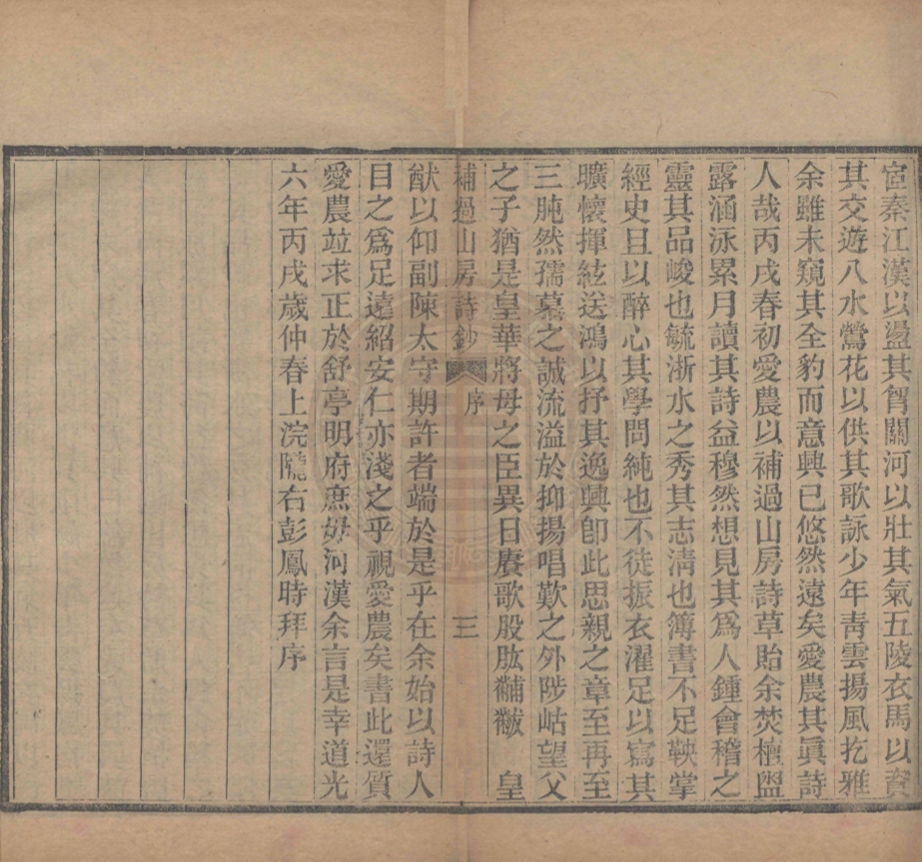 宦秦江漢以盪其胷關河以壯其氣五陵衣馬以資
其交遊八水鶯花以供其歌詠少年靑雲揚風扢雅
余雖未窺其全豹而意興已悠然遠矣愛農其眞詩
人哉丙戌春初愛農以補過山房詩草貽余焚檀盥
露涵泳累月讀其詩益穆然想見其爲人鍾會稽之
靈其品峻也毓浙水之秀其志淸也簿書不足鞅掌
經史且以醉心其學問純也不徒振衣濯足以寫其
曠懷揮絃送鴻以抒其逸興卽此思親之章至再至
三肫然孺慕之誠流溢於抑揚唱歎之外陟岵望父
之子猶是皇華將母之臣異日賡歌股肱黼黻 皇
補過山房詩鈔 序 三
猷以仰副陳太守期許者端於是乎在余始以詩人
目之爲足遠紹安仁亦淺之乎視愛農矣書此還質
愛農竝求正於舒亭明府庶毋河漢余言是幸道光
六年丙戌歲仲春上浣隴右彭鳳時拜序